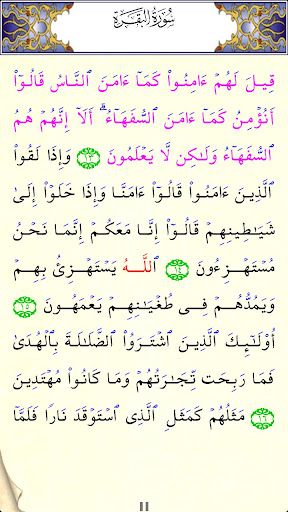 سُورَةُ البَقَرَةِ
قِيلَ لَهُمۡ ءَامِنُوا۟ كَمَآ ءَامَنَ ٱلنَّاسُ قَالُوٓا۟
أَنُؤۡمِنُ كَمَآ ءَامَنَ ٱلسُّفَهَآءُۗ أَلَآ إِنَّهُمۡ هُمُ
ٱلسُّفَهَآءُ وَلَٰكِن لَّا يَعۡلَمُونَ ١٣ وَإِذَا لَقُوا۟
ٱلَّذِينَ ءَامَنُوا۟ قَالُوٓا۟ ءَامَنَّا وَإِذَا خَلَوۡا۟ إِلَىٰ
شَيَٰطِينِهِمۡ قَالُوٓا۟ إِنَّا مَعَكُمۡ إِنَّمَا نَحۡنُ
مُسۡتَهۡزِءُونَ ١٤ ٱللَّهُ يَسۡتَهۡزِئُ بِهِمۡ
وَيَمُدُّهُمۡ فِى طُغۡيَٰنِهِمۡ يَعۡمَهُونَ ١٥
أُو۟لَٰٓئِكَ ٱلَّذِينَ ٱشۡتَرَوُا۟ ٱلضَّلَٰلَةَ بِٱلۡهُدَىٰ
فَمَا رَبِحَت تِّجَٰرَتُهُمۡ وَمَا كَانُوا۟ مُهۡتَدِينَ
١٦ مَثَلُهُمۡ كَمَثَلِ ٱلَّذِى ٱسۡتَوۡقَدَ نَارًا فَلَمَّآ